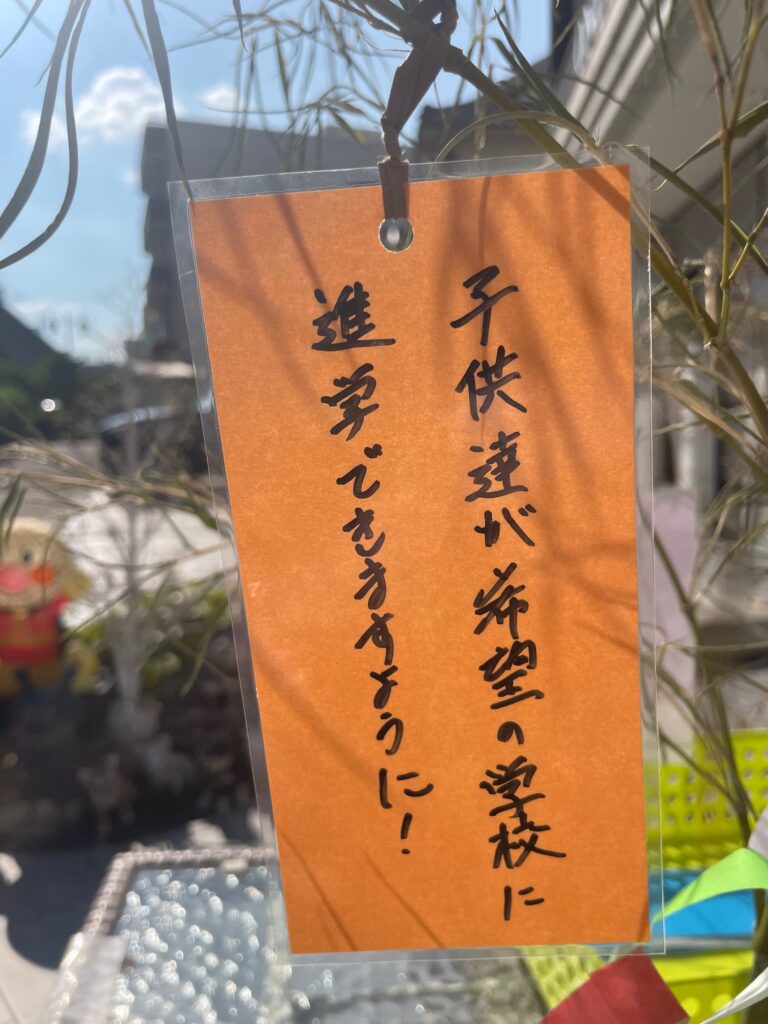 子供達が希望の学校に
進学できますように!